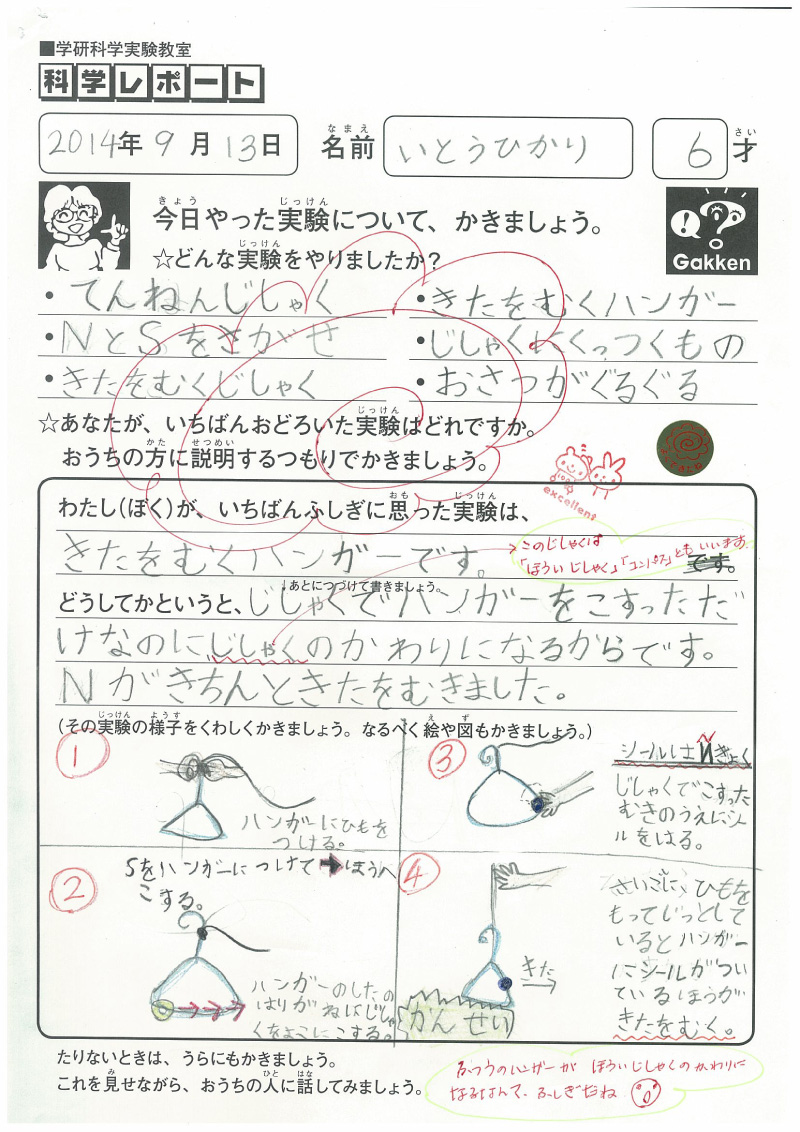 ■学研科学実験教室
科学レポート
2014年 9月 13日 名前 いとうひかり 6才
今日やった実験について、かきましょう。
☆どんな実験をやりましたか？
Gakken
・てんねんじしゃく ・きたをむくハンガー
・NとSをさがせ ・じしゃくにくっつくもの
・きたをむくじしゃく ・おさつがぐるぐる
☆あなたが、いちばんおどろいた実験はどれですか。
おうちの方に説明するつもりでかきましょう。
excellent
わたし（ぼく）が、いちばんふしぎに思った実験は、
きたをむくハンガーです。
です。
このじしゃくは
「ほういじしゃく」「コンパス」ともいいます。
↓あとにつづけて書きましょう。
どうしてかというと、じしゃくでハンガーをこすっただ
けなのにじしゃくのかわりになるからです。
Nがきちんときたをむきました。
（その実験の様子をくわしくかきましょう。なるべく絵や図もかきましょう。）
①
ハンガーにひもを
つける。
②
Sをハンガーにつけて➡ほうへ
こする。
ハンガーのしたの
はりがねはじしゃ
くをよこにこする。
③
シールはNきょく
じしゃくでこすった
むきのうえにシー
ルをはる。
④
きた
かんせい
さいごに、ひもを
もってじっとして
いるとハンガー
にシールがつい
ているほうが
きたをむく。
たりないときは、うらにもかきましょう。
これを見せながら、おうちの人に話してみましょう。
ふつうのハンガーが ほういじしゃくのかわりに
なるなんて、ふしぎだね